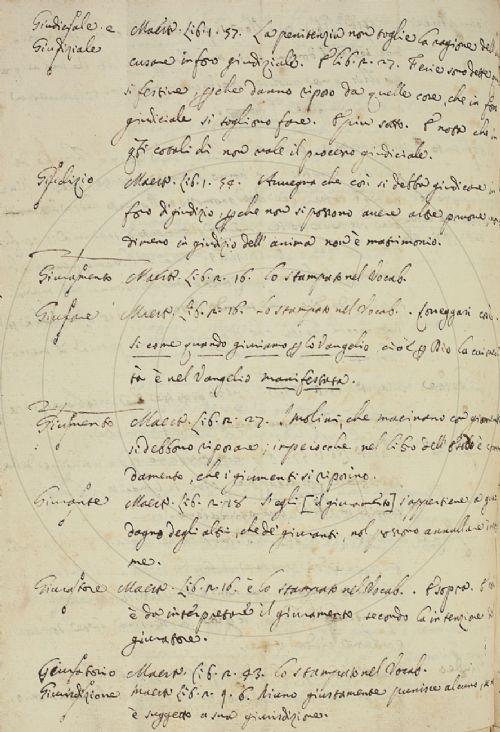 Giudiciale. e Maestr. Lib. 1. 57. La penitenzia non toglie la ragione dell'
Giudiziale cusare in foro giudiziale. E lib. 2. 27. Ferie sono dette
si festive, perche danno riposo da quelle cose, che in foro
giudiciale si sogliono fare. E più sotto. E nota che in
questi cotali dì non vale il processo giudiciale.
Giudizio Maestr. Lib. 1. 54. Avvegna che così si debba giudicare in
foro di giudizio, perche non si possono avere altre pruove,
dimeno in giudizio dell'anima non è matrimonio.
Giuramento Maestr. Lib. 2. 16. lo stampato nel Vocab.
Maestr. Lib. 2. 16. Lo stampato nel Vocab.
si come quando giuriamo per lo Vangelo cioè per Dio la cui
tà è nel Vangelo manifestata.
Giumento Maestr. Lib. 2. 27. I molini, che macinano co'
si debbono riposare; imperocche, nel libro dell' è
damento, che i giumenti si riposino.
Giurante Maestr. Lib. 2. 18 Se gli [il giuramento] s'appartiene a
dagno degli altri, che de' giuranti, nol possono annullare
me.
Giuratore Maestr. Lib. 2. 16. è lo stampato nel Vocab. E sopra.
è da interpretare il giuramento secondo la intenzione
giuratore.
Giuratorio Maestr. Lib. 2. 43. lo stampato nel Vocab.
Giurisdizione Maestr. Lib. 2. 9. 6. Niuno giustamente punisce alcuno,
è suggetto a sua giurisdizione.